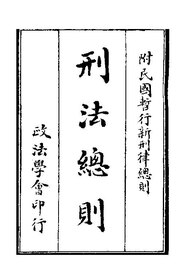 附民國暫行新刑律總則
刑法總則
政法學會印行